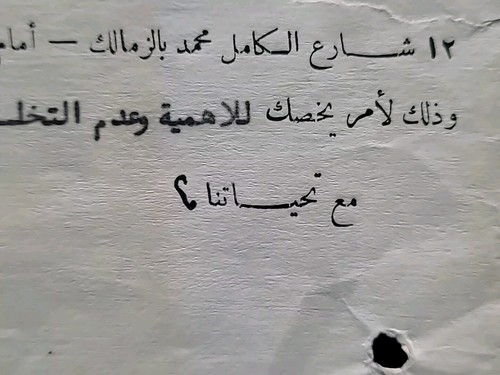 ١٢ شـــارع الـكامل محمد بالزمالك — أمام
وذلك لأمر يخصك للاهمية وعدم التخلـ
مع تحيـــاتنا م